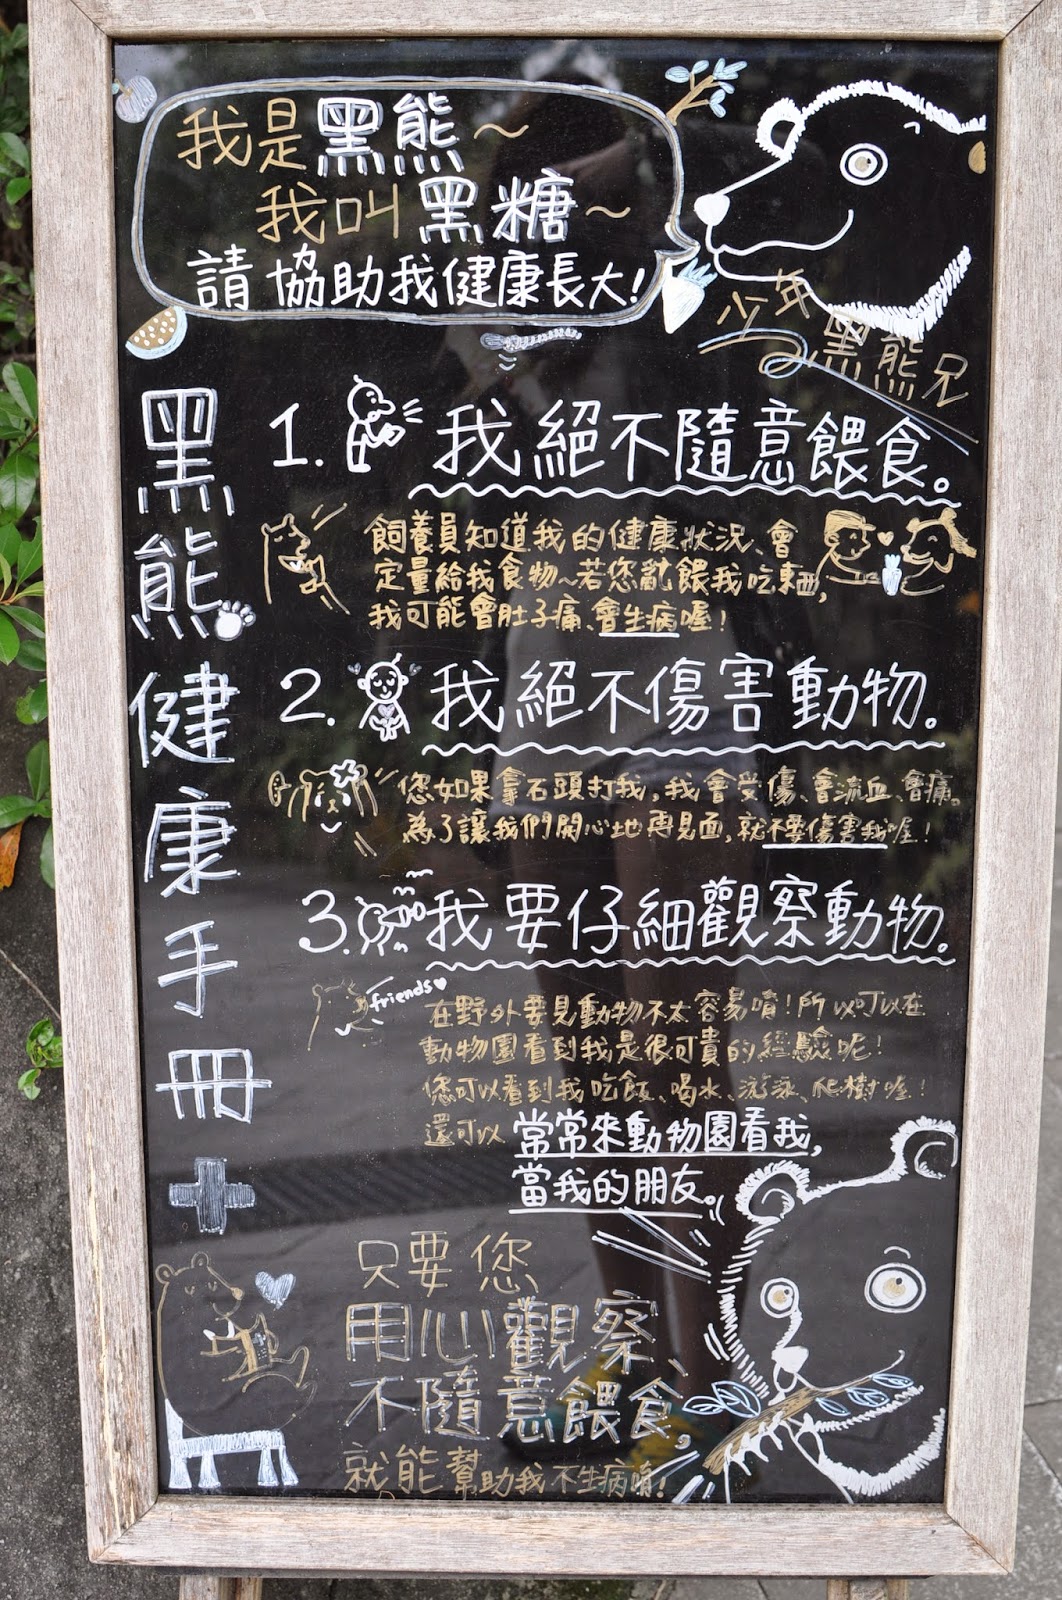 我是黑熊~
我叫黑糖~
請協助我健康長大!
少年黑熊兄
黑熊健康手冊
1. 我絕不隨意餵食。
飼養員知道我的健康狀況、會
定量給我食物~若您亂餵我吃東西,
我可能會肚子痛、會生病喔!
2. 我絕不傷害動物。
您如果拿石頭打我,我會受傷、會流血、會痛。
為了讓我們開心地再見面,就不要傷害我喔!
3. 我要仔細觀察動物。
friends
在野外要見動物不太容易唷!所以可以在
動物園看到我是很可貴的經驗呢!
您可以看到我吃飯、喝水、游泳、爬樹喔!
還可以常常來動物園看我,
當我的朋友。
只要您
用心觀察
不隨意餵食,
就能幫助我不生病唷!